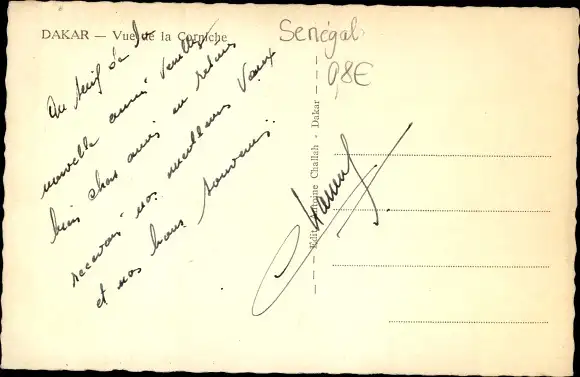 DAKAR — Vue de la Corniche
Au seuil de la
nouvelle année veuillez
bien chers amis en retour
recevoir nos meilleurs Vœux
et nos bons souvenirs
Sénégal
98E
Edit. Antoine Challah - Dakar